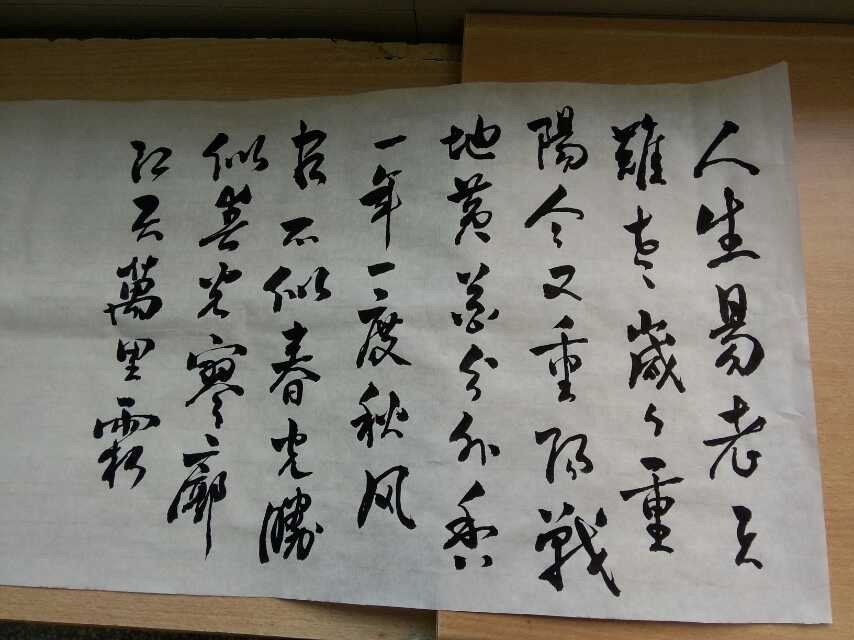 人生易老天
難老歲々重
陽今又重阳戰
地黄花分外香
一年一度秋风
劲不似春光勝
似春光寥廓
江天萬里霜